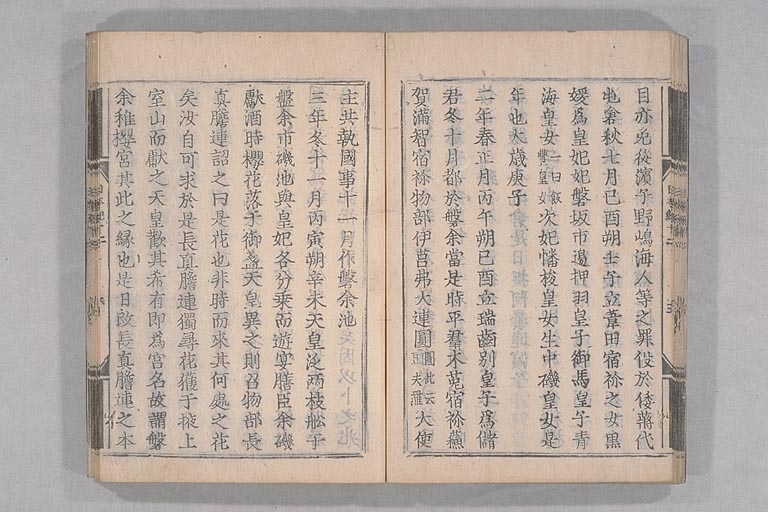 目亦免從濱子野嶋海人等之罪役於倭蔣代
屯倉秋七月己酉朔壬子立葦田宿祢之女黒
媛爲皇妃妃磐坂市邊押羽皇子御馬皇子青
海皇女一曰飯豐皇女次妃幡梭皇女生中磯皇女是
年也太歳庚子
二年春正月丙午朔己酉立瑞齒別皇子爲儲
君冬十月都於磐余當是時平群木菟宿祢蘇
賀滿智宿祢物部伊莒弗大連圓圓此云豆夫羅大使
主共執國事十一月作磐余池
三年冬十一月丙寅朔辛未天皇泛兩枝舩于
磐余市磯池與皇妃各分乗而遊宴膳臣余磯
獻酒時櫻花落于御盞天皇異之則召物部長
真膽連詔之曰是花也非時而來其何處之花
矣汝自可求於是長真膽連獨尋花獲于掖上
室山而獻之天皇歡其希有即爲宮名故謂磐
余稚櫻宮其此之縁也是日改長真膽連之本